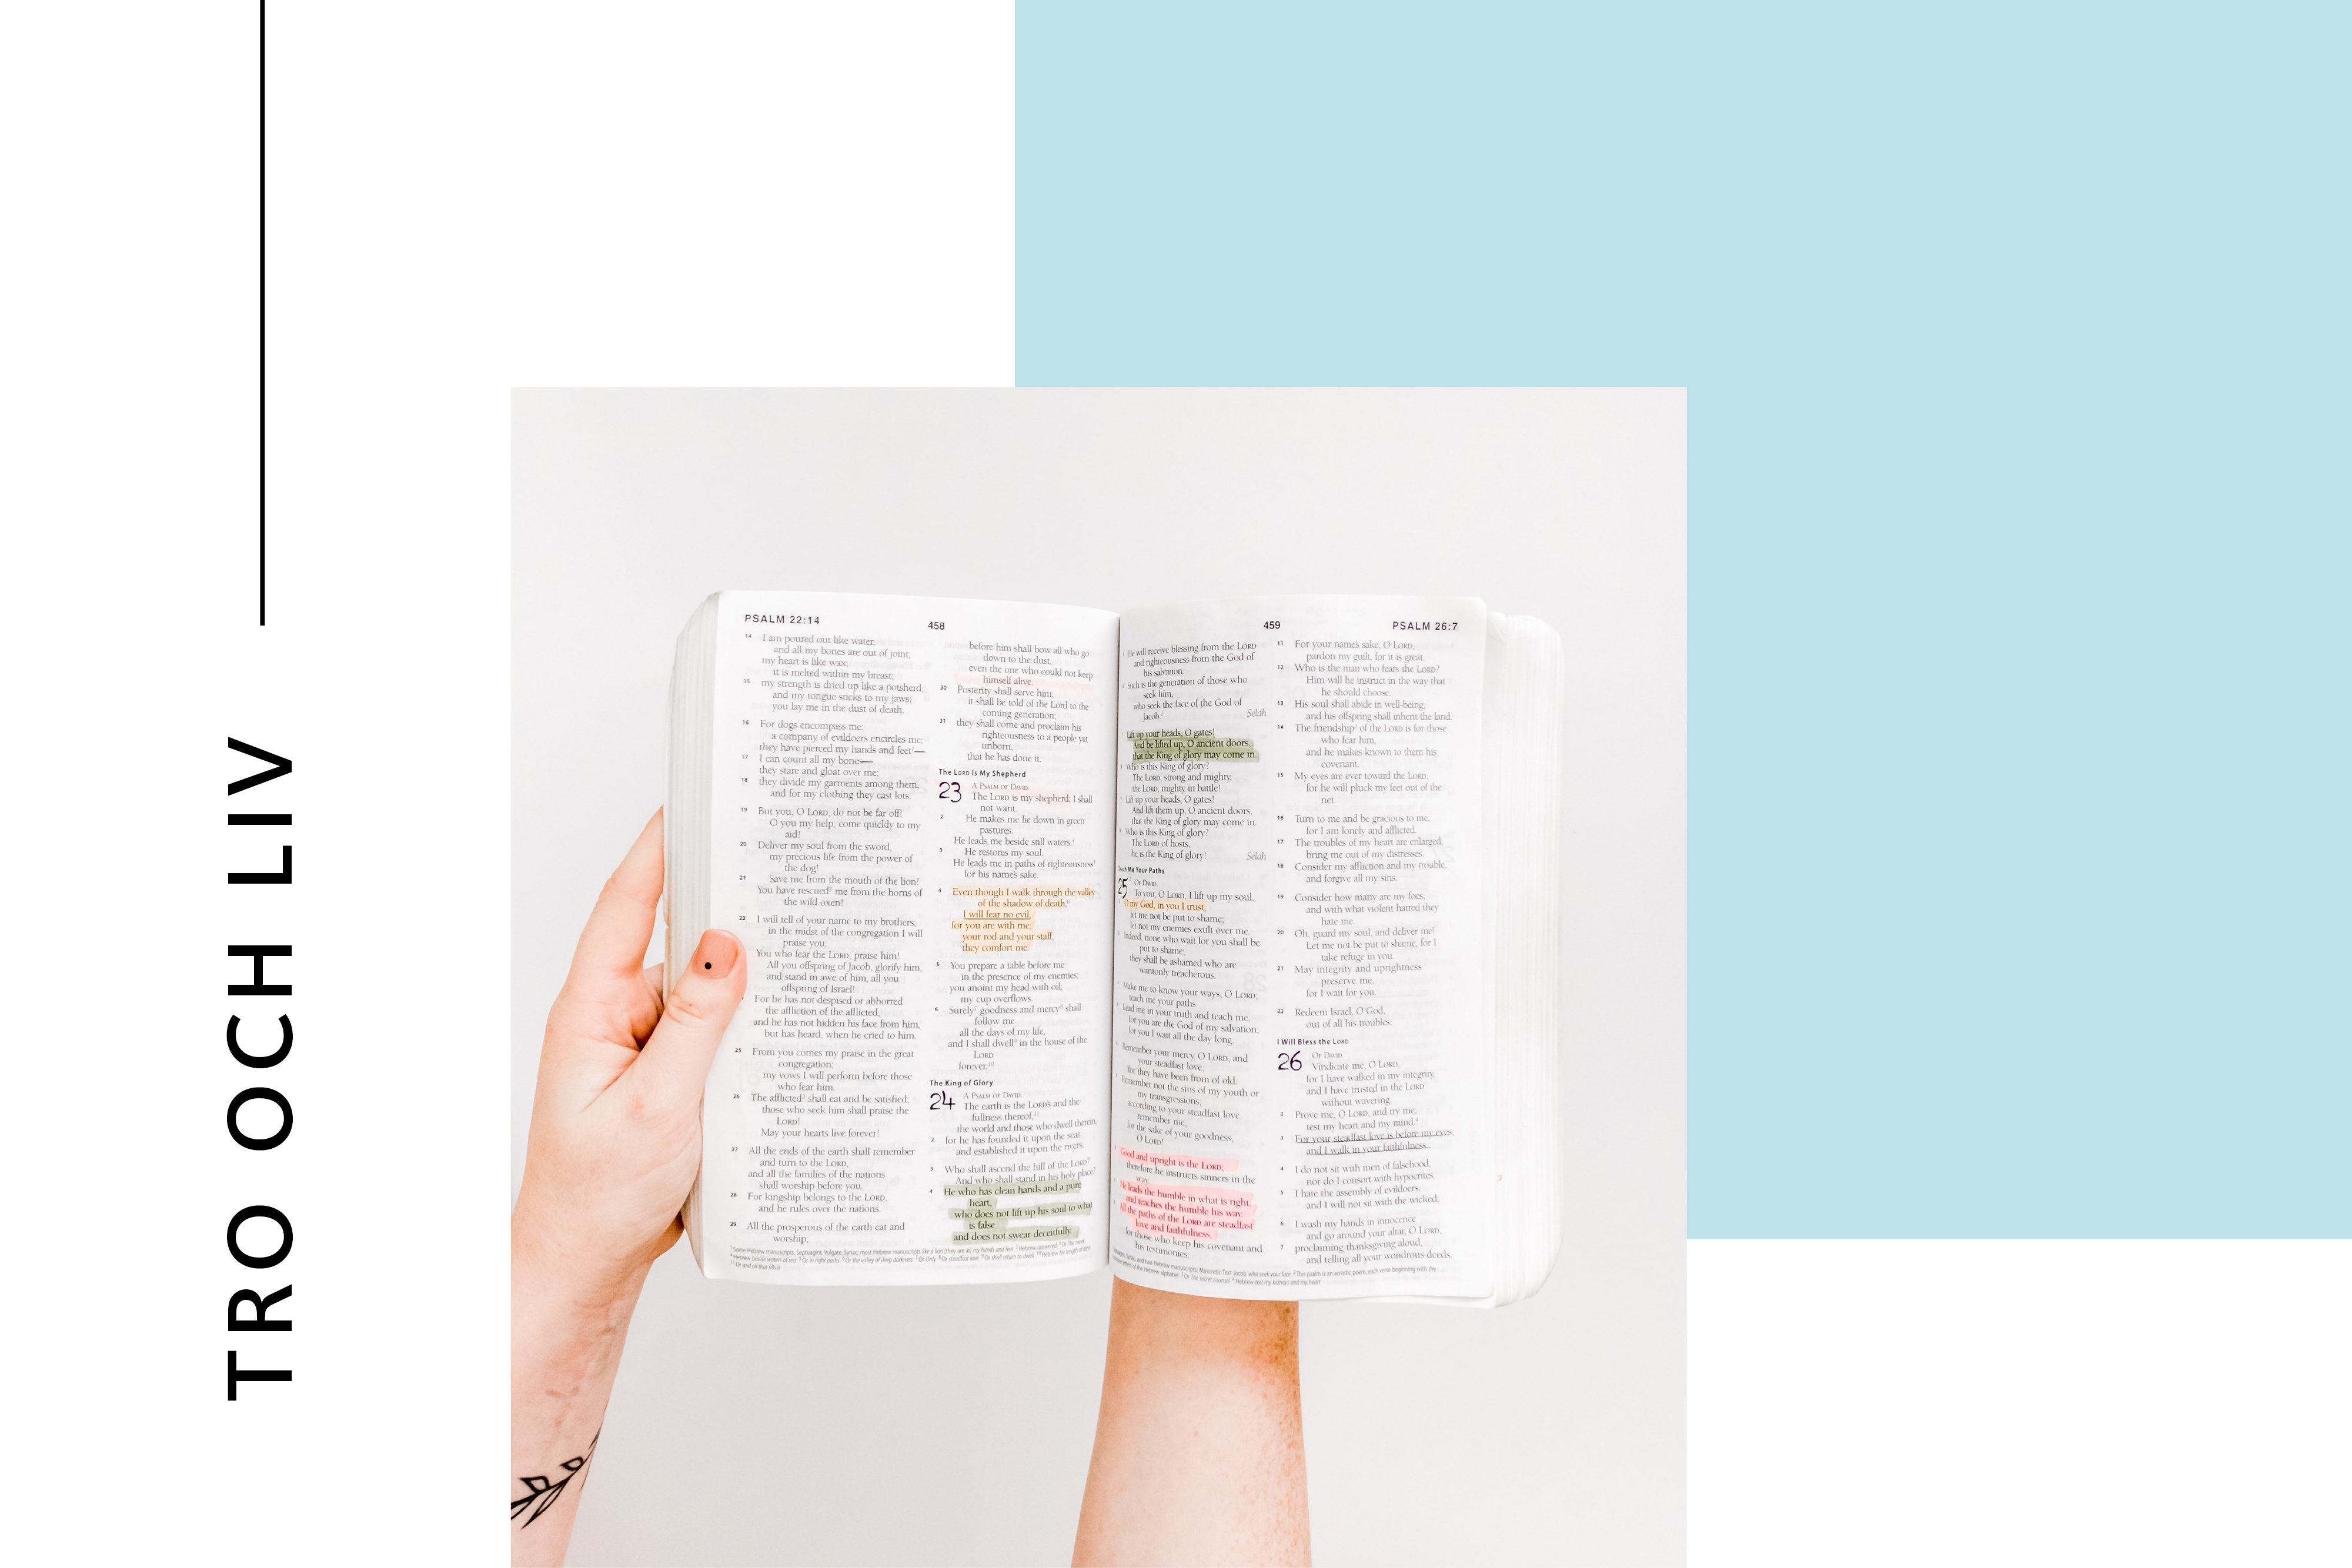 TRO OCH LIV
PSALM 22:14
458
14 I am poured out like water,
and all my bones are out of joint;
my heart is like wax;
it is melted within my breast;
15 my strength is dried up like a potsherd,
and my tongue sticks to my jaws;
you lay me in the dust of death.
16 For dogs encompass me;
a company of evildoers encircles me;
they have pierced my hands and feet—
17 I can count all my bones—
they stare and gloat over me;
18 they divide my garments among them,
and for my clothing they cast lots.
19 But you, O LORD, do not be far off!
O you my help, come quickly to my
aid!
20 Deliver my soul from the sword,
my precious life from the power of
the dog!
21 Save me from the mouth of the lion!
You have rescued² me from the horns of
the wild oxen!
22 I will tell of your name to my brothers;
in the midst of the congregation I will
praise you:
You who fear the LORD, praise him!
All you offspring of Jacob, glorify him,
and stand in awe of him, all you
offspring of Israel!
For he has not despised or abhorred
the affliction of the afflicted,
and he has not hidden his face from him,
but has heard, when he cried to him.
25 From you comes my praise in the great
congregation;
my vows I will perform before those
who fear him.
26 The afflicted³ shall eat and be satisfied;
those who seek him shall praise the
LORD!
May your hearts live forever!
27 All the ends of the earth shall remember
and turn to the LORD,
and all the families of the nations
shall worship before you.
28 For kingship belongs to the LORD,
and he rules over the nations.
29 All the prosperous of the earth eat and
worship;
before him shall bow all who go
down to the dust,
even the one who could not keep
himself alive.
30 Posterity shall serve him;
it shall be told of the Lord to the
coming generation;
31 they shall come and proclaim his
righteousness to a people yet
unborn,
that he has done it.
The LORD Is My Shepherd
23 A PSALM OF DAVID.
The LORD is my shepherd; I shall
not want.
2 He makes me lie down in green
pastures.
He leads me beside still waters.⁴
3 He restores my soul.
He leads me in paths of righteousness⁵
for his name's sake.
4 Even though I walk through the valley
of the shadow of death,⁶
I will fear no evil,
for you are with me;
your rod and your staff,
they comfort me.
5 You prepare a table before me
in the presence of my enemies;
you anoint my head with oil;
my cup overflows.
6 Surely⁷ goodness and mercy⁸ shall
follow me
all the days of my life,
and I shall dwell⁹ in the house of the
LORD
forever.¹⁰
The King of Glory
24 A PSALM OF DAVID.
The earth is the LORD's and the
fullness thereof,¹¹
the world and those who dwell therein,
2 for he has founded it upon the seas
and established it upon the rivers.
3 Who shall ascend the hill of the LORD?
And who shall stand in his holy place?
4 He who has clean hands and a pure
heart,
who does not lift up his soul to what
is false
and does not swear deceitfully.
459
PSALM 26:7
He will receive blessing from the LORD
and righteousness from the God of
his salvation.
Such is the generation of those who
seek him,
who seek the face of the God of
Jacob.
Selah
Lift up your heads, O gates!
And be lifted up, O ancient doors,
that the King of glory may come in.
Who is this King of glory?
The LORD, strong and mighty,
the LORD, mighty in battle!
Lift up your heads, O gates!
And lift them up, O ancient doors,
that the King of glory may come in.
Who is this King of glory?
The LORD of hosts,
he is the King of glory!
Selah
Teach Me Your Paths
25 OF DAVID.
To you, O LORD, I lift up my soul.
O my God, in you I trust;
let me not be put to shame;
let not my enemies exult over me.
Indeed, none who wait for you shall be
put to shame;
they shall be ashamed who are
wantonly treacherous.
Make me to know your ways, O LORD;
teach me your paths.
Lead me in your truth and teach me,
for you are the God of my salvation;
for you I wait all the day long.
Remember your mercy, O LORD, and
your steadfast love,
for they have been from of old.
Remember not the sins of my youth or
my transgressions;
according to your steadfast love
remember me,
for the sake of your goodness,
O LORD!
Good and upright is the LORD;
therefore he instructs sinners in the
way.
He leads the humble in what is right,
and teaches the humble his way.
All the paths of the LORD are steadfast
love and faithfulness,
for those who keep his covenant and
his testimonies.
11 For your name's sake, O LORD,
pardon my guilt, for it is great.
12 Who is the man who fears the LORD?
Him will he instruct in the way that
he should choose.
13 His soul shall abide in well-being,
and his offspring shall inherit the land.
14 The friendship of the LORD is for those
who fear him,
and he makes known to them his
covenant.
15 My eyes are ever toward the LORD,
for he will pluck my feet out of the
net.
16 Turn to me and be gracious to me,
for I am lonely and afflicted.
17 The troubles of my heart are enlarged;
bring me out of my distresses.
18 Consider my affliction and my trouble,
and forgive all my sins.
19 Consider how many are my foes,
and with what violent hatred they
hate me.
20 Oh, guard my soul, and deliver me!
Let me not be put to shame, for I
take refuge in you.
21 May integrity and uprightness
preserve me,
for I wait for you.
22 Redeem Israel, O God,
out of all his troubles.
I Will Bless the LORD
26 OF DAVID.
Vindicate me, O LORD,
for I have walked in my integrity,
and I have trusted in the LORD
without wavering.
2 Prove me, O LORD, and try me;
test my heart and my mind.
3 For your steadfast love is before my eyes,
and I walk in your faithfulness.
4 I do not sit with men of falsehood,
nor do I consort with hypocrites.
5 I hate the assembly of evildoers,
and I will not sit with the wicked.
6 I wash my hands in innocence
and go around your altar, O LORD,
7 proclaiming thanksgiving aloud,
and telling all your wondrous deeds.